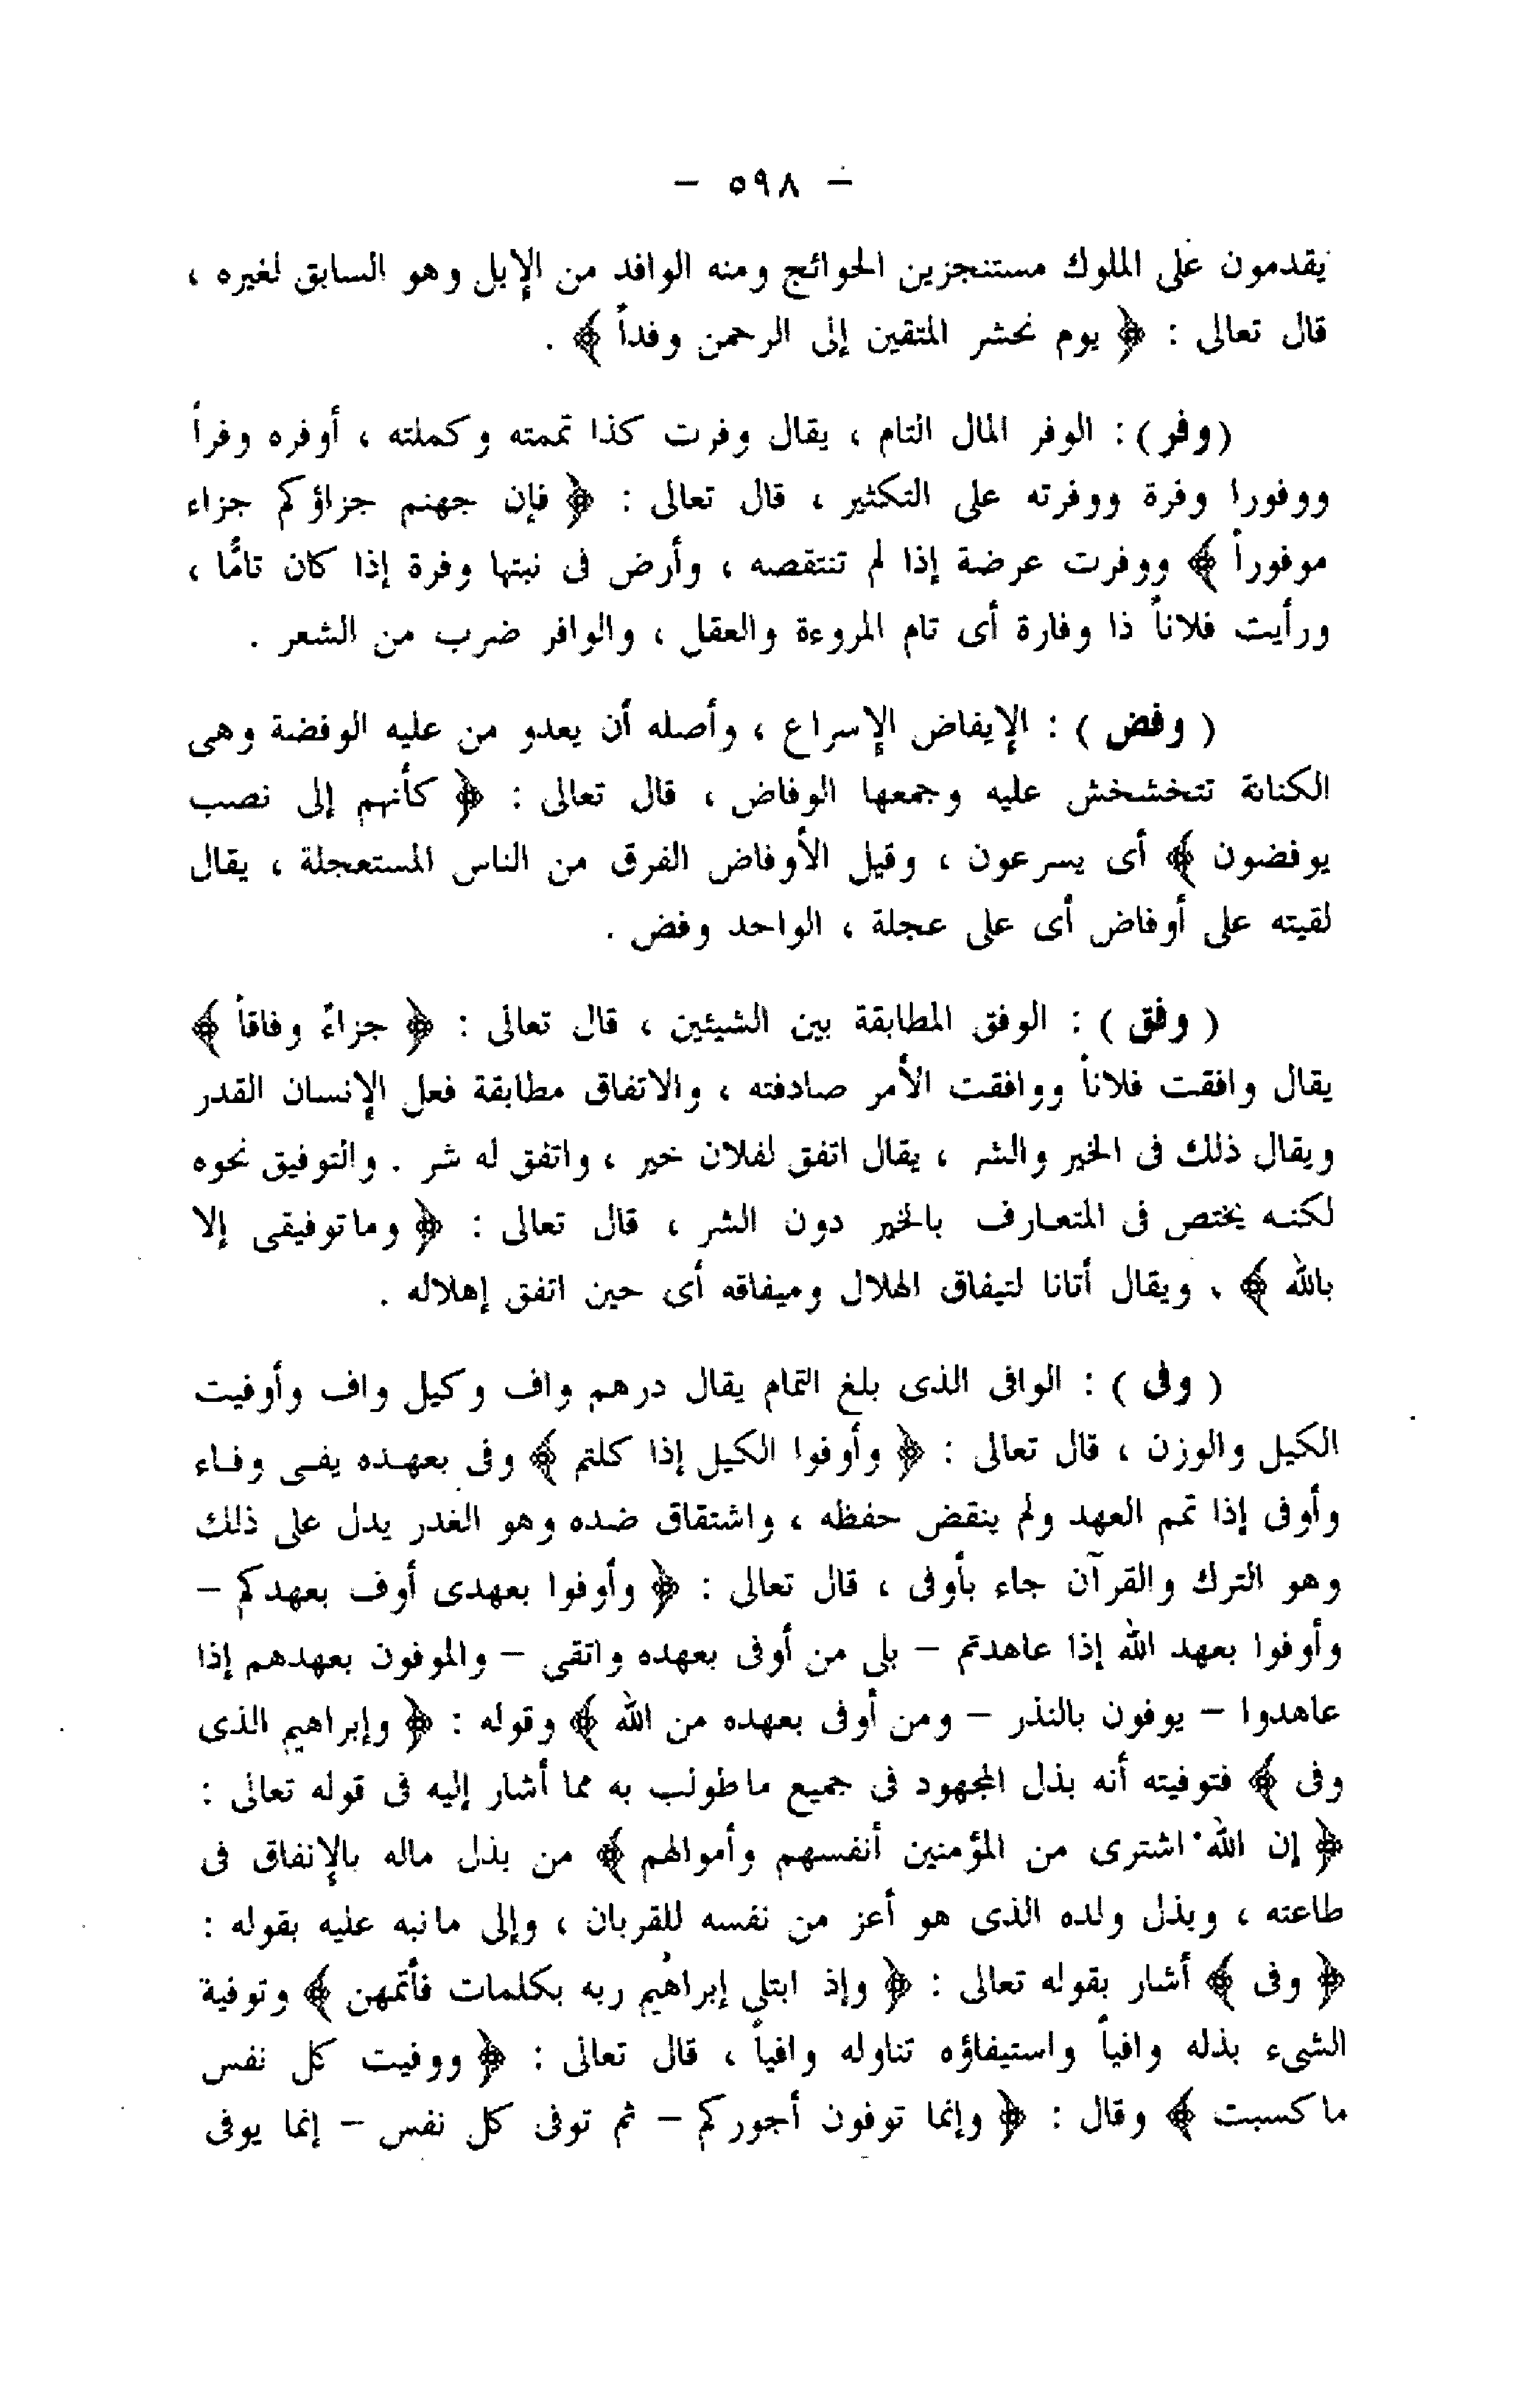 – ٥٩٨ –
يقدمون على الملوك مستنجزين الحوائج ومنه الوافد من الإبل وهو السابق لغيره ،
قال تعالى : ﴿ يوم نحشر المتقين إلى الرحمن وفداً ﴾ .
(وفر) : الوفر المال التام ، يقال وفرت كذا تممته وكملته ، أوفره وفراً
ووفورا وفرة ووفرته على التكثير ، قال تعالى : ﴿ فإن جهنم جزاؤكم جزاء
موفوراً ﴾ ووفرت عرضة إذا لم تنتقصه ، وأرض فى نبتها وفرة إذا كان تامًّا ،
ورأيت فلاناً ذا وفارة أى تام المروءة والعقل ، والوافر ضرب من الشعر .
( وفض ) : الإيفاض الإسراع ، وأصله أن يعدو من عليه الوفضة وهى
الكنانة تتخشخش عليه وجمعها الوفاض ، قال تعالى : ﴿ كأنهم إلى نصب
يوفضون ﴾ أى يسرعون ، وقيل الأوفاض الفرق من الناس المستعجلة ، يقال
لقيته على أوفاض أى على عجلة ، الواحد وفض .
( وفق ) : الوفق المطابقة بين الشيئين ، قال تعالى : ﴿ جزاءً وفاقاً ﴾
يقال وافقت فلاناً ووافقت الأمر صادفته ، والاتفاق مطابقة فعل الإنسان القدر
ويقال ذلك فى الخير والشر ، يقال اتفق لفلان خير ، واتفق له شر . والتوفيق نحوه
لكنه يختص فى المتعارف بالخير دون الشر ، قال تعالى : ﴿ وماتوفيقى إلا
بالله ﴾ ، ويقال أتانا لتيفاق الهلال وميفاقه أى حين اتفق إهلاله .
( وفى ) : الوافى الذى بلغ التمام يقال درهم واف وكيل واف وأوفيت
الكيل والوزن ، قال تعالى : ﴿ وأوفوا الكيل إذا كلتم ﴾ وفى بعهده يفى وفاء
وأوفى إذا تمم العهد ولم ينقض حفظه ، واشتقاق ضده وهو الغدر يدل على ذلك
وهو الترك والقرآن جاء بأوفى ، قال تعالى : ﴿ وأوفوا بعهدى أوف بعهدكم –
وأوفوا بعهد الله إذا عاهدتم – بلى من أوفى بعهده واتقى – والموفون بعهدهم إذا
عاهدوا – يوفون بالنذر – ومن أوفى بعهده من الله ﴾ وقوله : ﴿ وإبراهيم الذى
وفى ﴾ فتوفيته أنه بذل المجهود فى جميع ماطولب به مما أشار إليه فى قوله تعالى :
﴿ إن الله اشترى من المؤمنين أنفسهم وأموالهم ﴾ من بذل ماله بالإنفاق فى
طاعته ، وبذل ولده الذى هو أعز من نفسه للقربان ، وإلى مانبه عليه بقوله :
﴿ وفى ﴾ أشار بقوله تعالى : ﴿ وإذ ابتلى إبراهيم ربه بكلمات فأتمهن ﴾ وتوفية
الشىء بذله وافياً واستيفاؤه تناوله وافياً ، قال تعالى : ﴿ ووفيت كل نفس
ماكسبت ﴾ وقال : ﴿ وإنما توفون أجوركم – ثم توفى كل نفس – إنما يوفى